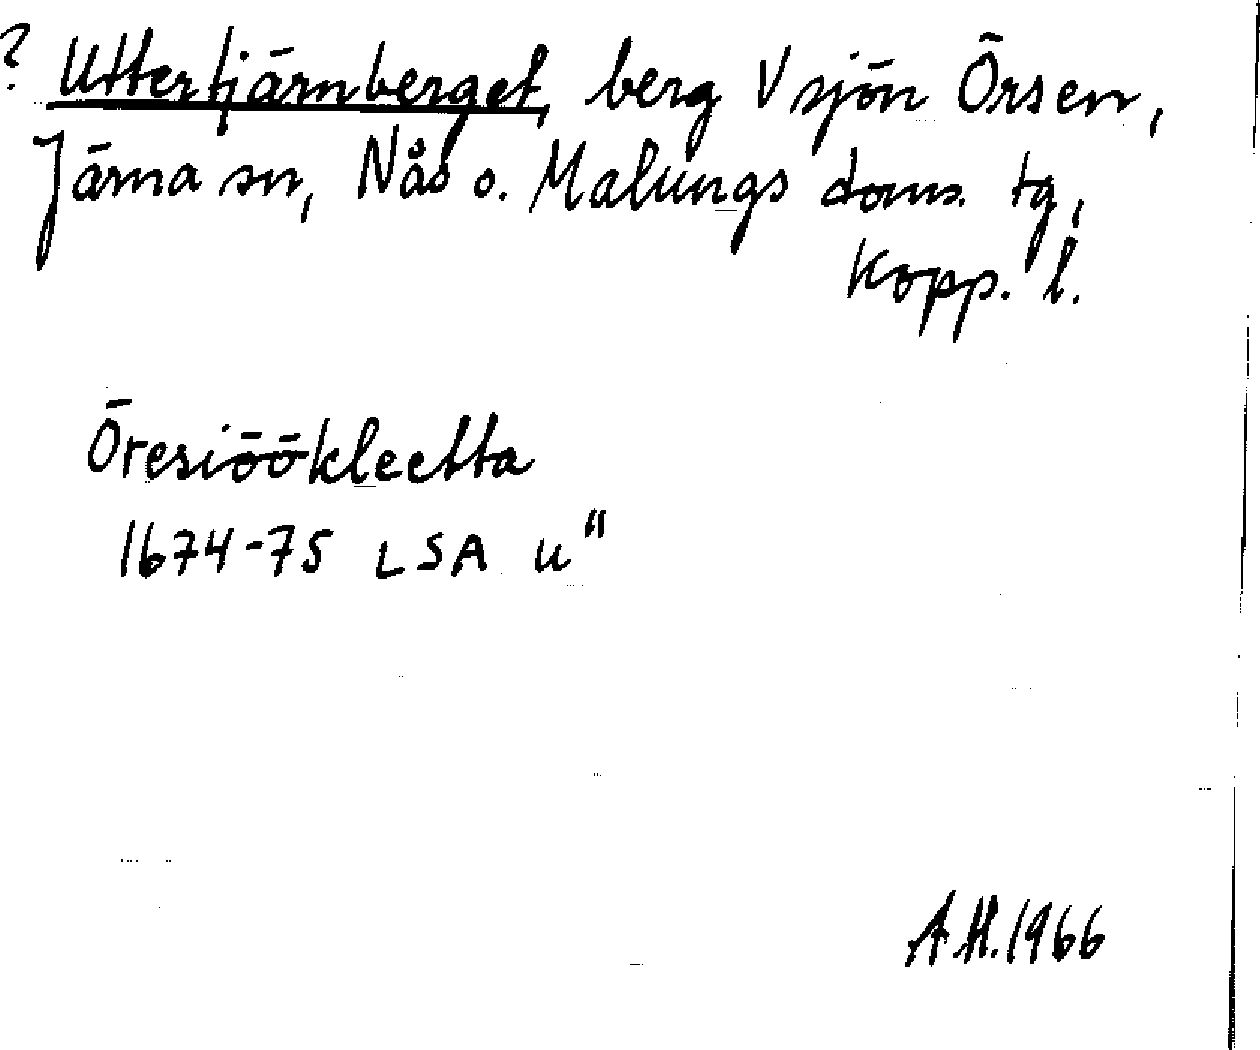 ? Uttertjärnberget, berg V sjön Örsen,
Järna sn, Nås o. Malungs doms. tg,
Kopp. l.
Öresiöökleetta
1674-75 LSA u"
A.H. 1966